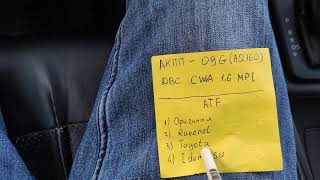 АКПП - 09G (AQ160)
ДВС CWA 1.6 MPI
ATF
1) Оригинал
2) Ravenol
3) Toyota
4) Idemitsu